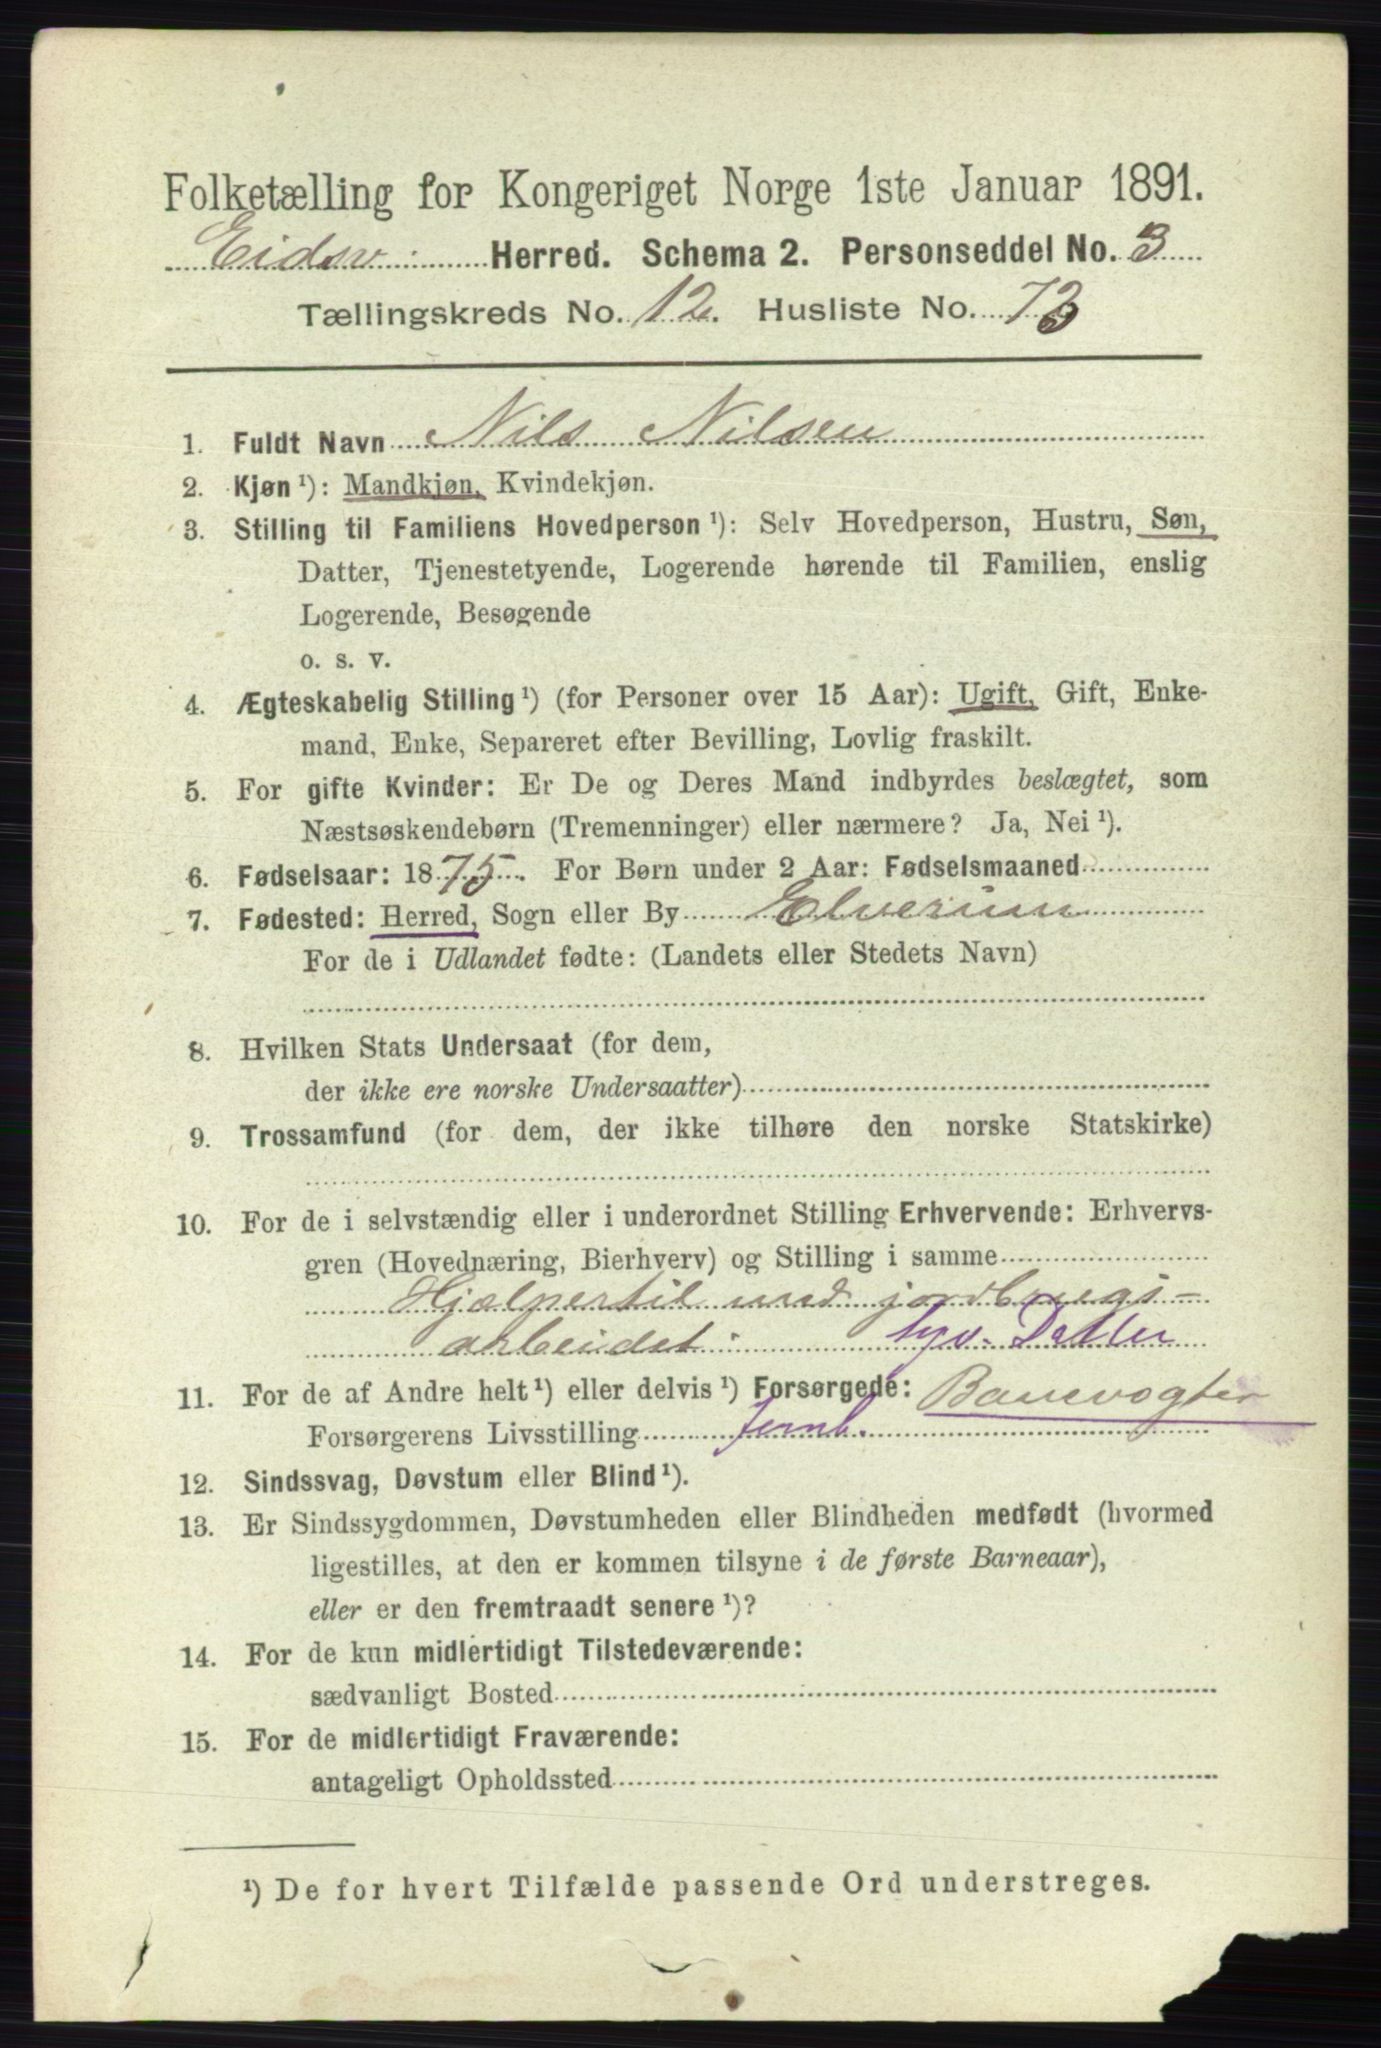 Folketælling for Kongeriget Norge 1ste Januar 1891.
Eidsv. Herred. Schema 2. Personseddel No. 3
Tællingskreds No. 12. Husliste No. 73
1. Fuldt Navn Nils Nilsen
2. Kjøn ¹): Mandkjøn, Kvindekjøn.
3. Stilling til Familiens Hovedperson ¹): Selv Hovedperson, Hustru, Søn,
Datter, Tjenestetyende, Logerende hørende til Familien, enslig
Logerende, Besøgende
o. s. v.
4. Ægteskabelig Stilling ¹) (for Personer over 15 Aar): Ugift, Gift, Enke-
mand, Enke, Separeret efter Bevilling, Lovlig fraskilt.
5. For gifte Kvinder: Er De og Deres Mand indbyrdes beslægtet, som
Næstsøskendebørn (Tremenninger) eller nærmere? Ja, Nei ¹).
6. Fødselsaar: 1875. For Børn under 2 Aar: Fødselsmaaned
7. Fødested: Herred, Sogn eller By Elverum
For de i Udlandet fødte: (Landets eller Stedets Navn)
8. Hvilken Stats Undersaat (for dem,
der ikke ere norske Undersaatter)
9. Trossamfund (for dem, der ikke tilhøre den norske Statskirke)
10. For de i selvstændig eller i underordnet Stilling Erhvervende: Erhvervs-
gren (Hovednæring, Bierhverv) og Stilling i samme
Hjælper til med jordbrugs-
arbeidet.
11. For de af Andre helt ¹) eller delvis ¹) Forsørgede: Banevogter
Forsørgerens Livsstilling Jernb.
12. Sindssvag, Døvstum eller Blind ¹).
13. Er Sindssygdommen, Døvstumheden eller Blindheden medfødt (hvormed
ligestilles, at den er kommen tilsyne i de første Barneaar),
eller er den fremtraadt senere ¹)?
14. For de kun midlertidigt Tilstedeværende:
sædvanligt Bosted
15. For de midlertidigt Fraværende:
antageligt Opholdssted
¹) De for hvert Tilfælde passende Ord understreges.